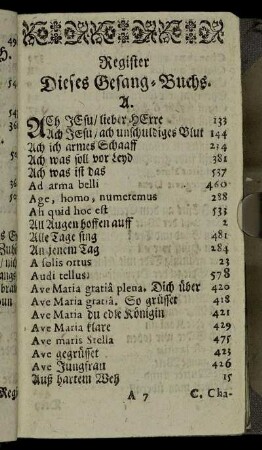 Register
Dieses Gesang-Buchs.
A.
ACh JEsu/ lieber HErre 133
Ach JEsu/ ach unschuldiges Blut 144
Ach ich armes Schaaff 234
Ach was soll vor Leyd 381
Ach was ist das 537
Ad arma belli 460
Age, homo, numeremus 288
Ah quid hoc est 533
All Augen hoffen auff 2
Alle Tage sing 481
An jenem Tag 284
A solis ortus 23
Audi tellus 578
Ave Maria gratiâ plena. Dich über 420
Ave Maria gratiâ. So grüsset 418
Ave Maria du edle Königin 421
Ave Maria klare 429
Ave maris Stella 475
Ave gegrüsset 423
Ave Jungfrau 426
Auß hartem Weh 15
A 7 C. Cha-